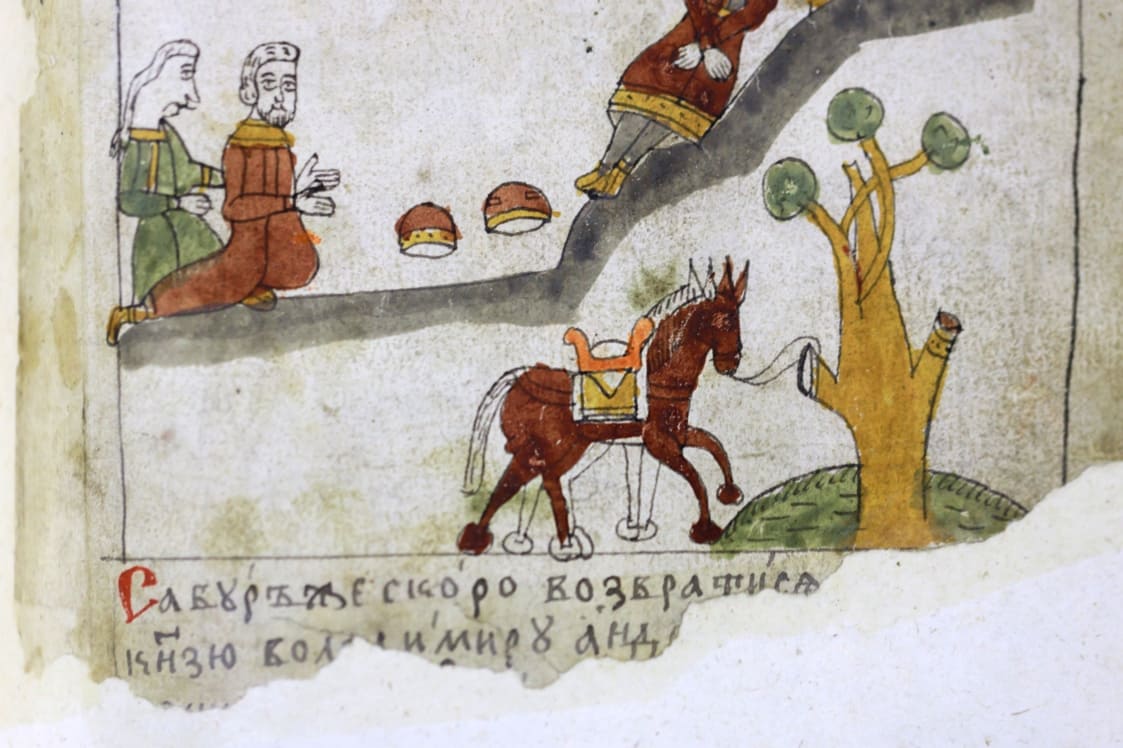 Сабꙋ́рѣже ско́ро возврати́сѧ
кн҃зю вол и́мирꙋ а҆нд